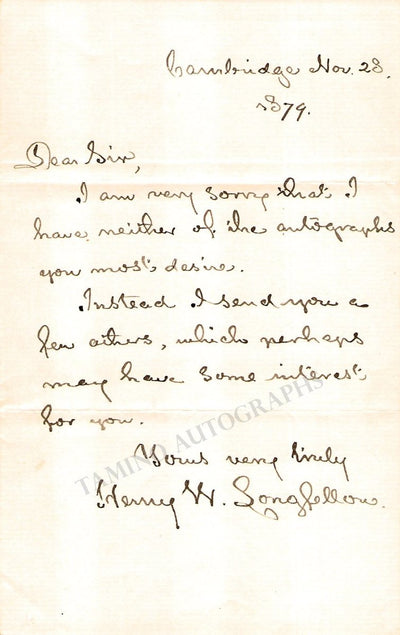 Cambridge Nov. 28.
1879.
Dear Sir,
I am very sorry that I
have neither of the autographs
you most desire.
Instead I send you a
few others, which perhaps
may have some interest
for you.
Yours very truly
Henry W. Longfellow.
TAMINO AUTOGRAPHS